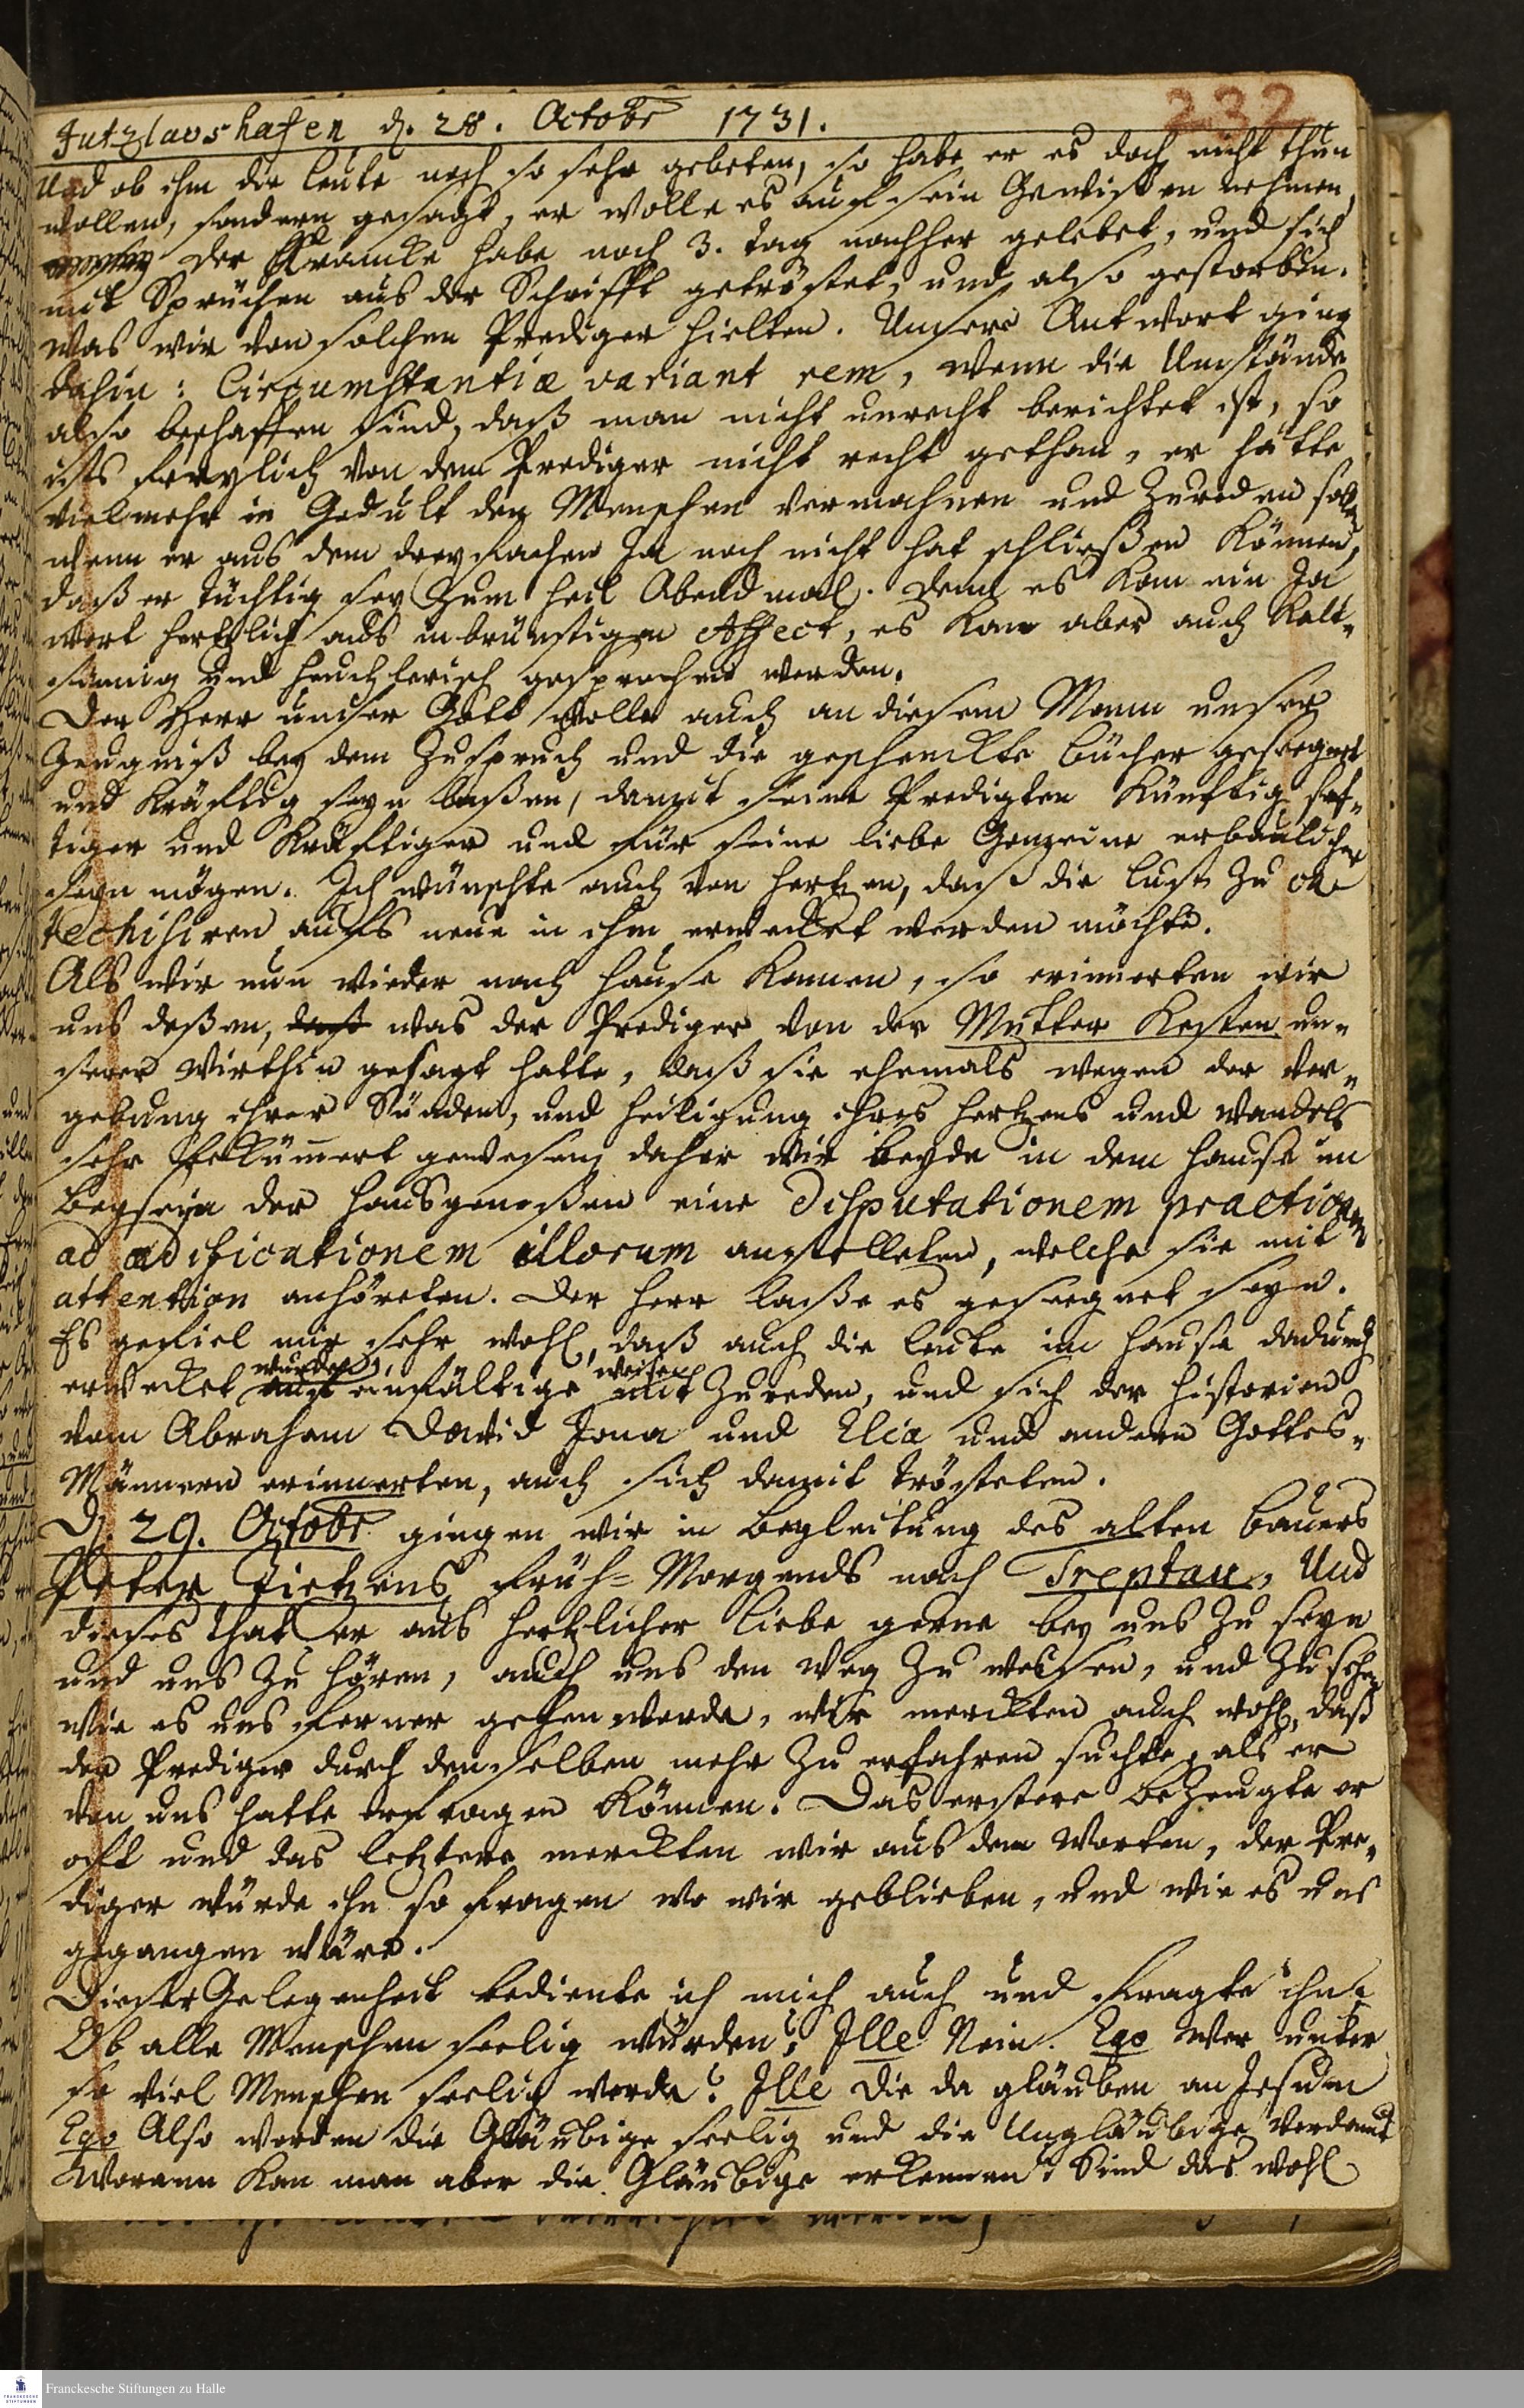 Jutzlavshafen d. 28. Octobr 1731.
232
Und ob ihm die Leute noch so sehr gebeten, so habe er es doch nicht thun
wollen, sondern gesagt, er wolle es auf sein Gewißen nehmen,
der Krancke habe noch 3. Tag nachher gelebet, und sich
mit Sprüchen aus der Schrifft getröstet, und also gestorben.
Was wir von solchen Prediger hielten. Unsere Antwort ging
dahin: Circumstantiæ variant rem, wenn die Umstände
also beschaffen sind, daß man nicht unrecht berichtet ist, so
ists freylich von dem Prediger nicht recht gethan, er hätte
vielmehr in Gedult den Menschen vermahnen und zureden sollen
wenn er aus dem dreyfachen Ja noch nicht hat schließen können,
daß er tüchtig sey zum heil Abendmahl. Denn es kan ein Ja
wort hertzlich aus inbrünstigen Affect, es kan aber auch kalt-
sinnig und heuchlerisch gesprochen werden.
Der Herr unser Gott wolle auch an diesem Mann unser
Zeugniß bey dem Zuspruch und die geschenckte Bücher geseegnet
und kräftig seyn laßen, damit seine Predigten künftig saf-
tiger und kräftiger und für seine liebe Gemeine erbaulicher
seyn mögen. Ich wünschte auch von hertzen, daß die Lust zu ca
techisiren aufs neue in ihm erwecket werden möchte.
Als wir nun wieder nach Hause kamen, so erinnerten wir
uns deßen, daß was der Prediger von der Mutter Kesten un-
serer Wirthin gesagt hatte, daß sie ehemals wegen der Ver-
gebung ihrer Sünden, und Heiligung ihres Hertzens und Wandels
sehr bekümmert gewesen, daher wir beyde in dem Hause im
Beyseyn der Hausgenoßen eine Disputationem practicam
ad ædificationem illorum anstelleten, welche sie mit
attention anhöreten. Der Herr laße es geseegnet seyn.
Es gefiel mir sehr wohl, daß auch die Leute im Hause dadurch
erwecket wurden, einfältige weise mit zureden, und sich der Historien
vom Abraham David Jona und Elia und andern Gottes-
Männern erinnerten, auch sich damit trösteten.
D. 29. Octobr gingen wir in Begleitung des alten Bauers
Peter Zietzens früh-Morgends nach Treptau, Und
dieses that er aus hertzlicher Liebe gerne bey uns zu seyn
und uns zu hören, auch uns den Weg zu weisen, und zu sehen
wie es uns ferner gehen werde, wir merckten auch wohl, daß
der Prediger durch denselben mehr zu erfahren suchte, als er
von uns hatte erfragen können. Das erstere bezeugte er
offt und das letztere merckten wir aus den Worten, der Pre-
diger würde ihn so fragen wo wir geblieben, und wie es uns
gegangen wäre.
Dieser Gelegenheit bediente ich mich auch und fragte ihn:
Ob alle Menschen seelig würden? Ille Nein. Ego Wer unter
so viel Menschen seelig werde? Ille Die da gläuben an Jesum
Ego Also werden die Gläubige seelig und die Ungläubige verdamt
Woran kan man aber die Gläubige erkennen? Sind das wohl
Franckesche Stiftungen zu Halle